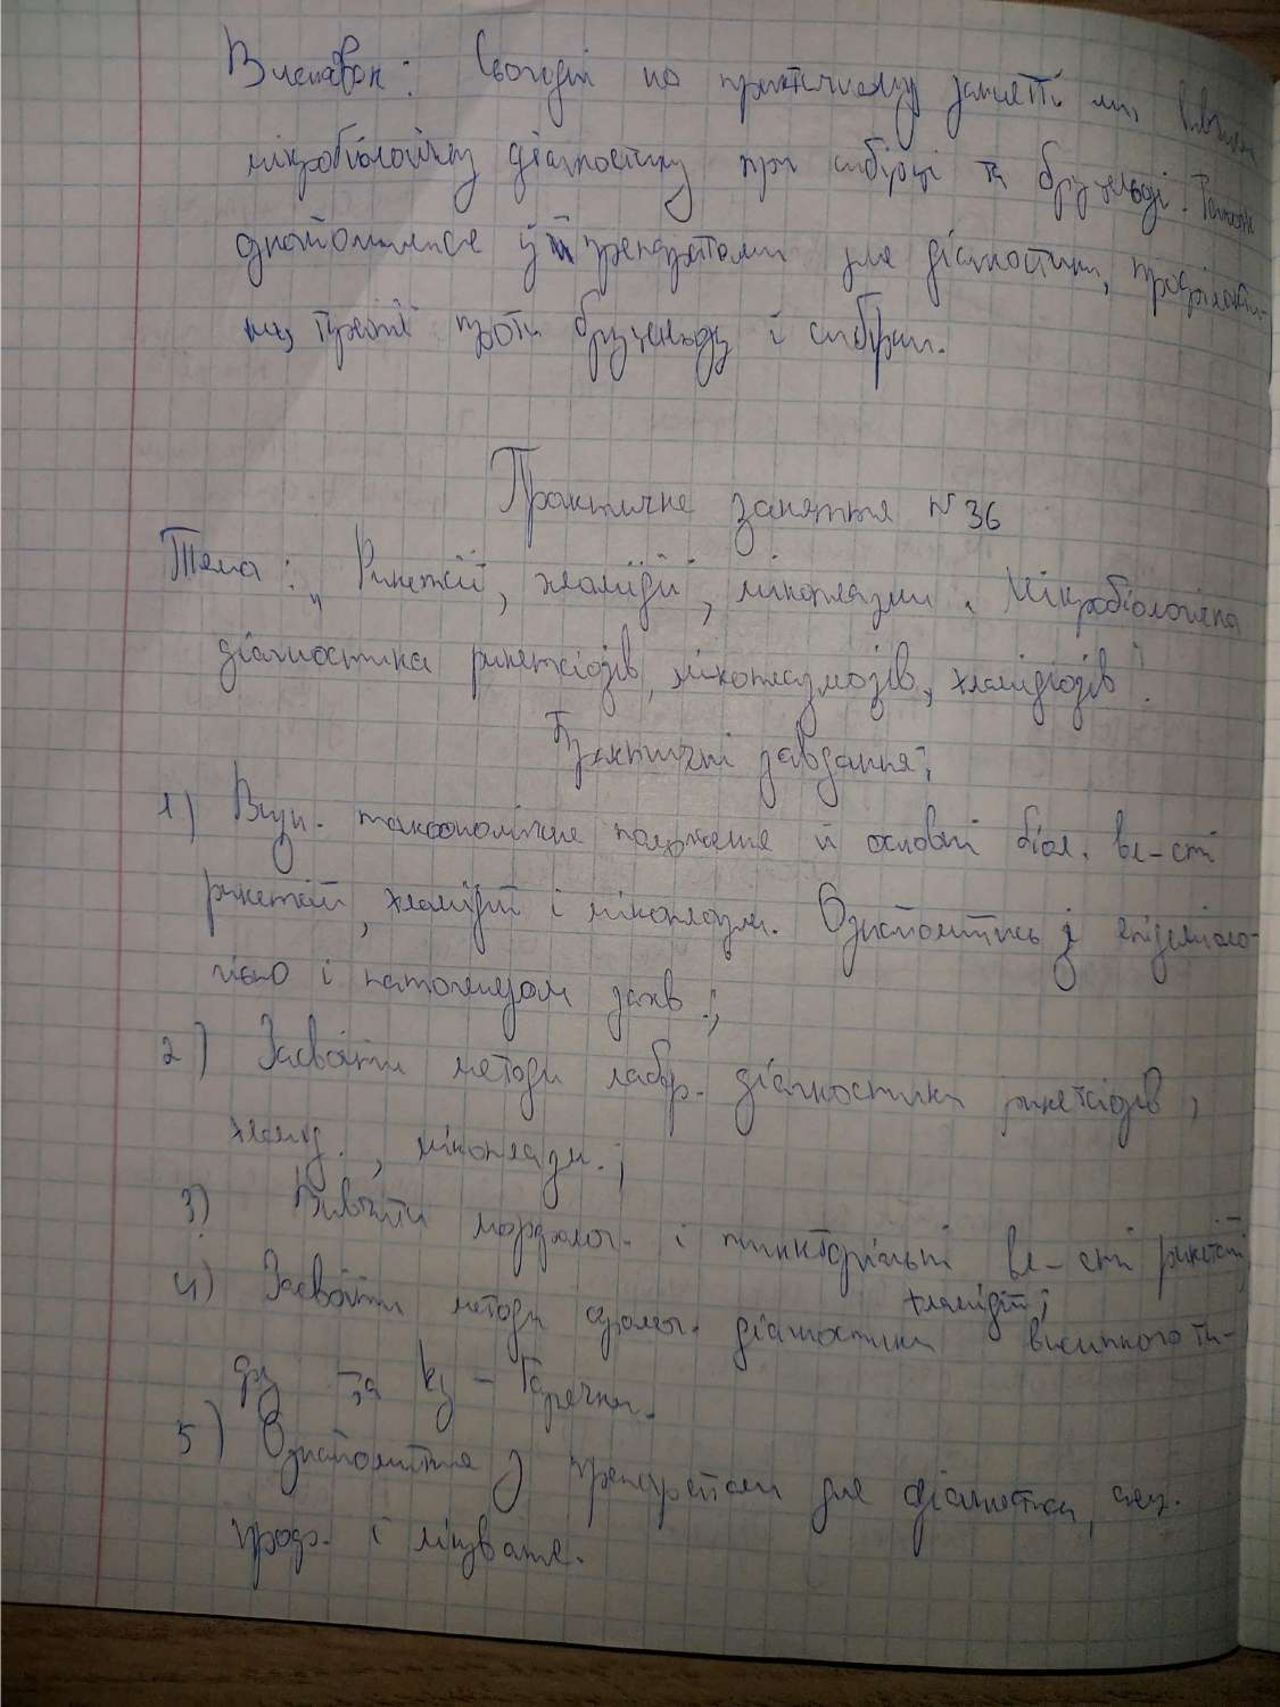 Висновок: Сьогодні на практичному занятті ми вивчили
мікробіологічну діагностику при сибірці та бруцельозі. Також
ознайомилися з препаратами для діагностики, профілакти-
ки, терапії проти бруцельозу і сибірки.
Практичне заняття №36
Тема: „Рикетсії, хламідії, мікоплазми. Мікробіологічна
діагностика рикетсіозів, мікоплазмозів, хламідіозів".
Практичні завдання:
1) Вивч. таксономічне положення й основні біол. вл-сті
рикетсій, хламідій і мікоплазм. Ознайомитись з епідеміоло-
гією і патогенезом захв.;
2) Засвоїти методи лабор. діагностики рикетсіозів,
хламід., мікоплазм.;
3) Вивчити морфолог. і тинкторіальні вл-сті рикетсій,
хламідій;
4) Засвоїти методи серолог. діагностики висипного ти-
фу та Ку-гарячки.
5) Ознайомитися з препаратами для діагностики, спец.
проф. і лікування.